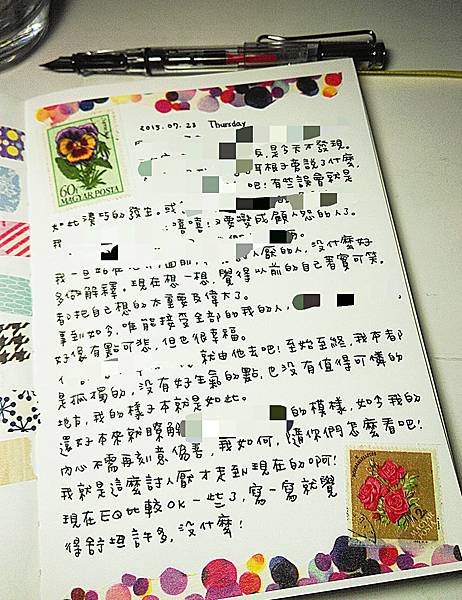 2015.07.23 Thursday
反,是今天不發現。
耳根子旁說了什麼,
吧!有些誤會就是
如此湊巧的發生。或
我 嘻嘻!又要變成顧人怨的人了。
我一旦 人厭的人,沒什麼好
多做解釋,現在想一想,覺得以前的自己著實可笑。
都把自己想的太重要及偉大了。
事到如今,唯能接受全部的我的人,
好像有點可悲,但也很幸福。
就由他去吧!至始至終,我本都
是孤獨的,沒有好生氣的點,也沒有值得可憐的
地方,我的樣子本就是如此。
還好本來就瞭解 的模樣,如今我的
內心不需再刻意偽善,我如何,隨你們怎麼看吧!
我就是這麼討人厭才走到現在的啊!
現在EQ比較OK一些了,寫一寫就覺
得舒坦許多,沒什麼!
60f
MAGYAR POSTA